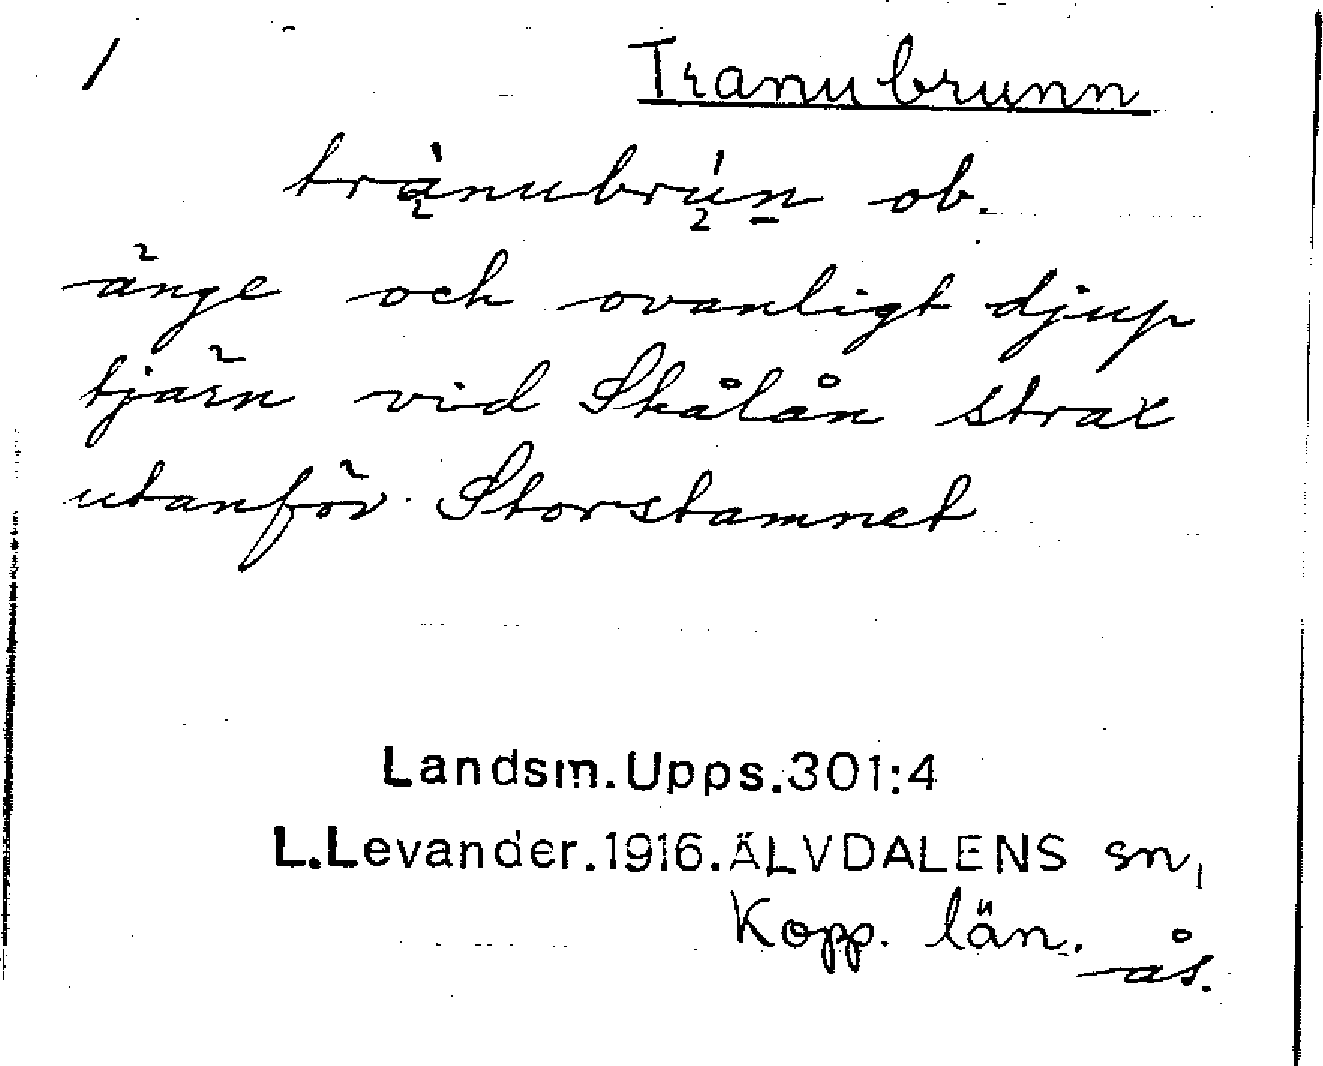 / Tranubrunn
trą̀nubrų́n̠ ob.
änge och ovanligt djup
tjärn vid Skålån strax
utanför Storstamnet
Landsm.Upps.301:4
L.Levander.1916.ÄLVDALENS sn,
Kopp. län.
ås.